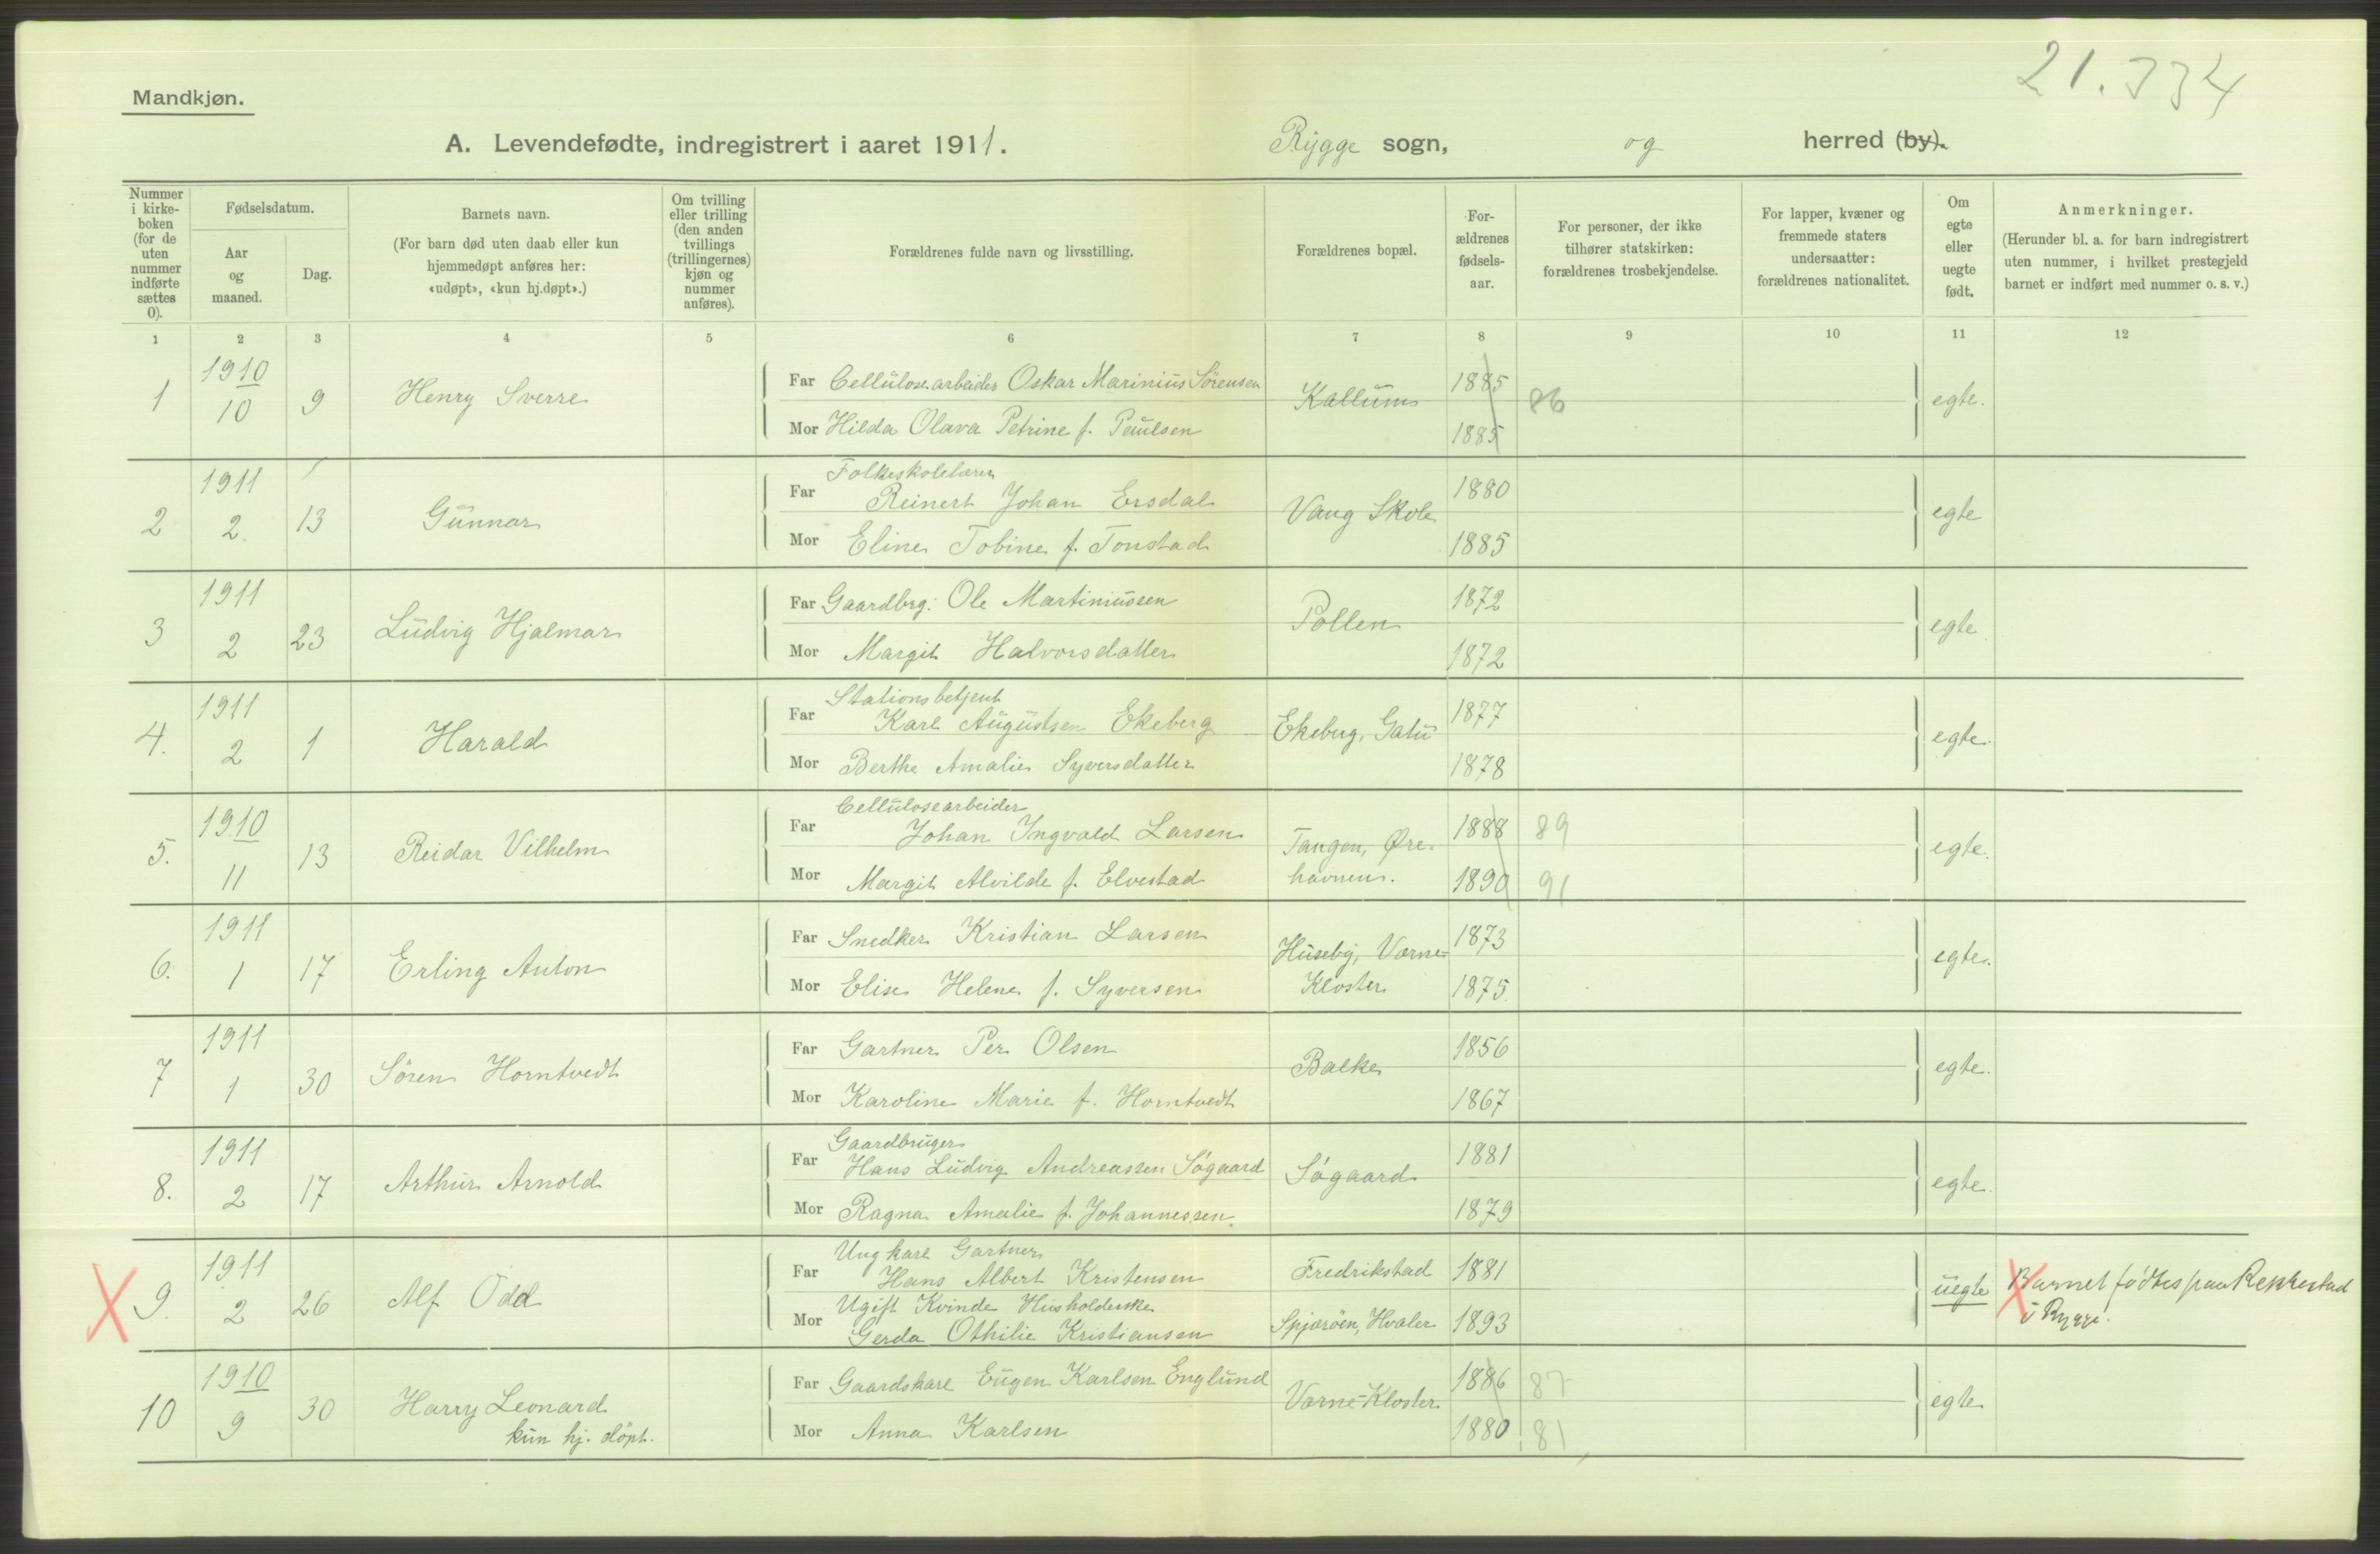 21.334
Mandkjøn.
A. Levendefødte, indregistrert i aaret 1911. Rygge sogn, og herred (by).
Nummer i kirkeboken (for de uten nummer indførte sættes 0).
Fødselsdatum.
Aar og maaned.
Dag.
Barnets navn.
(For barn død uten daab eller kun hjemmedøpt anføres her: «udøpt», «kun hj.døpt».)
Om tvilling eller trilling (den anden tvillings (trillingernes) kjøn og nummer anføres).
Forældrenes fulde navn og livsstilling.
Forældrenes bopæl.
Forældrenes fødselsaar.
For personer, der ikke tilhører statskirken: forældrenes trosbekjendelse.
For lapper, kvæner og fremmede staters undersaatter: forældrenes nationalitet.
Om egte eller uegte født.
Anmerkninger.
(Herunder bl. a. for barn indregistrert uten nummer, i hvilket prestegjeld barnet er indført med nummer o. s. v.)
1 2 3 4 5 6 7 8 9 10 11 12
1 1910 10 9 Henry Sverre Far Cellulosearbeider Oskar Marinius Sörensen Kallum 1885 86 egte.
Mor Hilda Olava Petrine f. Paulsen 1885
2 1911 2. 13 Gunnar Far Folkeskolelærer
Reinert Johan Ersdal Vang Skole 1880 egte
Mor Eline Tobine f. Tonstad 1885
3 1911 2 23 Ludvig Hjalmar Far Gaardbrg: Ole Martiniussen Pollen 1872 egte
Mor Margit Halvorsdatter 1872
4. 1911 2 1 Harald Far Stationsbetjent
Karl Augustsen Ekeberg Ekeberg, Gatu 1877 egte.
Mor Berthe Amalie Syversdatter 1878
5. 1910 11 13 Reidar Vilhelm Far Cellulosearbeider
Johan Ingvald Larsen Tangen, Øre- 1888 89 egte.
Mor Margit Alvilde f. Elvestad havnen. 1890 91
6. 1911 1 17 Erling Anton Far Snedker Kristian Larsen Huseby, Varne- 1873 egte.
Mor Elise Helene f. Syversen Kloster 1875.
7 1911 1 30 Sören Horntvedt Far Gartner Per Olsen Balke 1856 egte.
Mor Karoline Marie f. Horntvedt 1867
8. 1911 2 17 Arthur Arnold Far Gaardbruger
Hans Ludvig Andreassen Sögaard Sögaard 1881 egte.
Mor Ragna Amalie f. Johannessen. 1879
X 9. 1911 2 26 Alf Odd Far Ungkarl Gartner
Hans Albert Kristensen Fredrikstad 1881 uegte X Barnet födtes paa Rekkestad
Mor Ugift Kvinde Husholderske i Rygge.
Gerda Othilie Kristiansen Spjærøen, Hvaler 1893
10 1910 9 30 Harry Leonard Far Gaardskarl Eugen Karlsen Englund Varne-Kloster 1886 87 egte
kun hj. döpt. Mor Anna Karlsen 1880 81